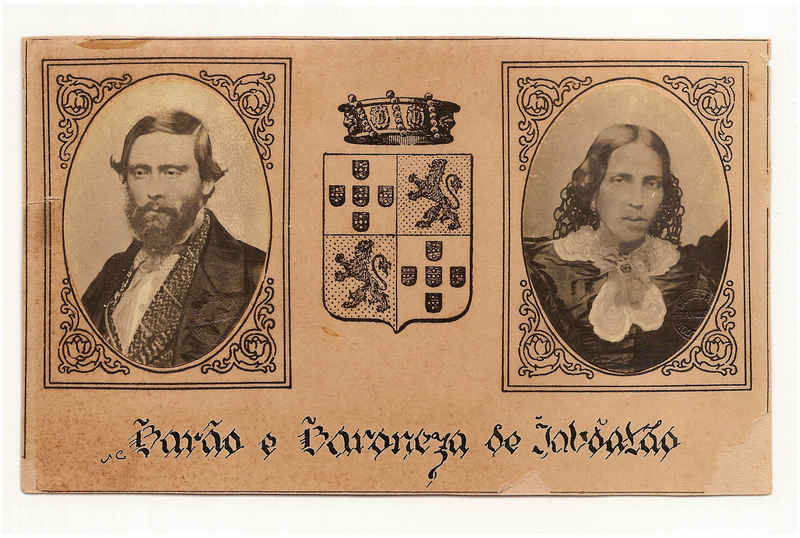 Barão e Baroneza de Jabôatão